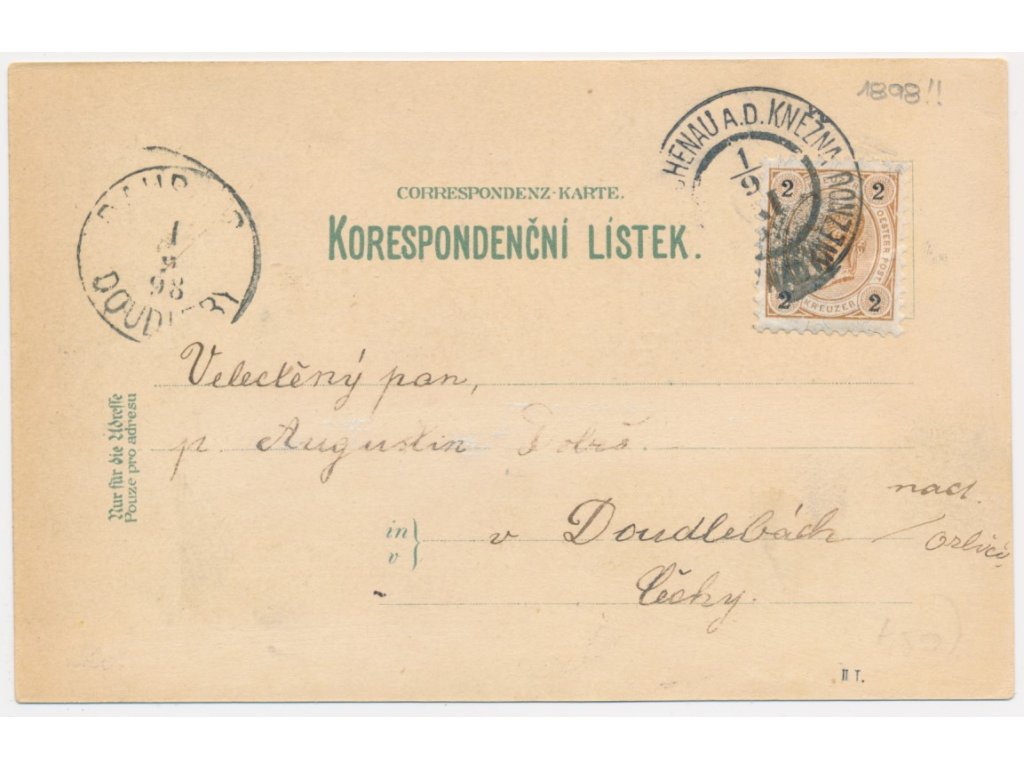 1898!!
HENAU A.D. KNĚŽNA
KNĚŽNA
1
9
2 2
OESTERR. POST
KREUZER
2 2
CORRESPONDENZ-KARTE.
KORESPONDENČNÍ LÍSTEK.
1
9
98
Velectěný pan,
p. Augustin
nad
in v Doudlebách / Orlicí,
v
Čechy.
Nur für die Adresse
Pouze pro adresu
II I.